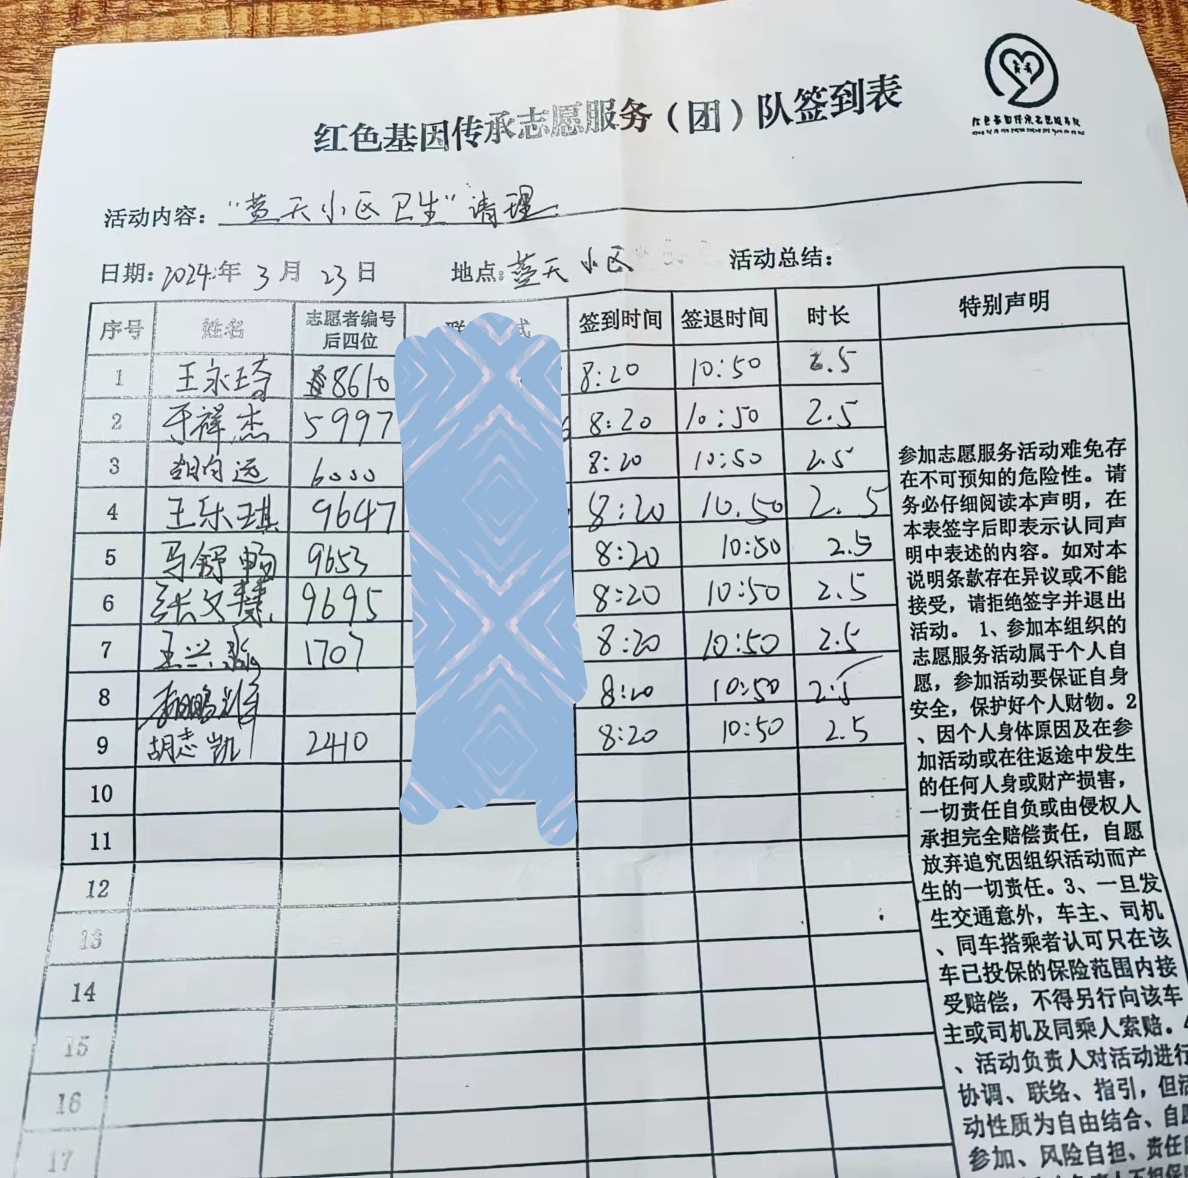 红色基因传承志愿服务（团）队签到表
活动内容：“蓝天小区卫生”清理
日期：2024年 3月 23日 地点：蓝天小区 活动总结：
序号 姓名 志愿者编号后四位 联 式 签到时间 签退时间 时长 特别声明
1 王永琦 8610 8:20 10:50 2.5
2 于祥杰 5997 8:20 10:50 2.5
3 远 6000 8:20 10:50 2.5
4 王乐琪 9647 8:20 10.50 2.5
5 马舒畅 9653 8:20 10:50 2.5
6 张文慧 9695 8:20 10:50 2.5
7 王兴 1707 8:20 10:50 2.5
8 8:20 10:50 2.5
9 胡志凯 2410 8:20 10:50 2.5
10
11
12
13
14
15
16
17
参加志愿服务活动难免存
在不可预知的危险性。请
务必仔细阅读本声明，在
本表签字后即表示认同声
明中表述的内容。如对本
说明条款存在异议或不能
接受，请拒绝签字并退出
活动。 1、参加本组织的
志愿服务活动属于个人自
愿，参加活动要保证自身
安全，保护好个人财物。2
、因个人身体原因及在参
加活动或在往返途中发生
的任何人身或财产损害，
一切责任自负或由侵权人
承担完全赔偿责任，自愿
放弃追究因组织活动而产
生的一切责任。3、一旦发
生交通意外，车主、司机
、同车搭乘者认可只在该
车已投保的保险范围内接
受赔偿，不得另行向该车
主或司机及同乘人索赔。4
、活动负责人对活动进行
协调、联络、指引，但活
动性质为自由结合、自愿
参加、风险自担、责任